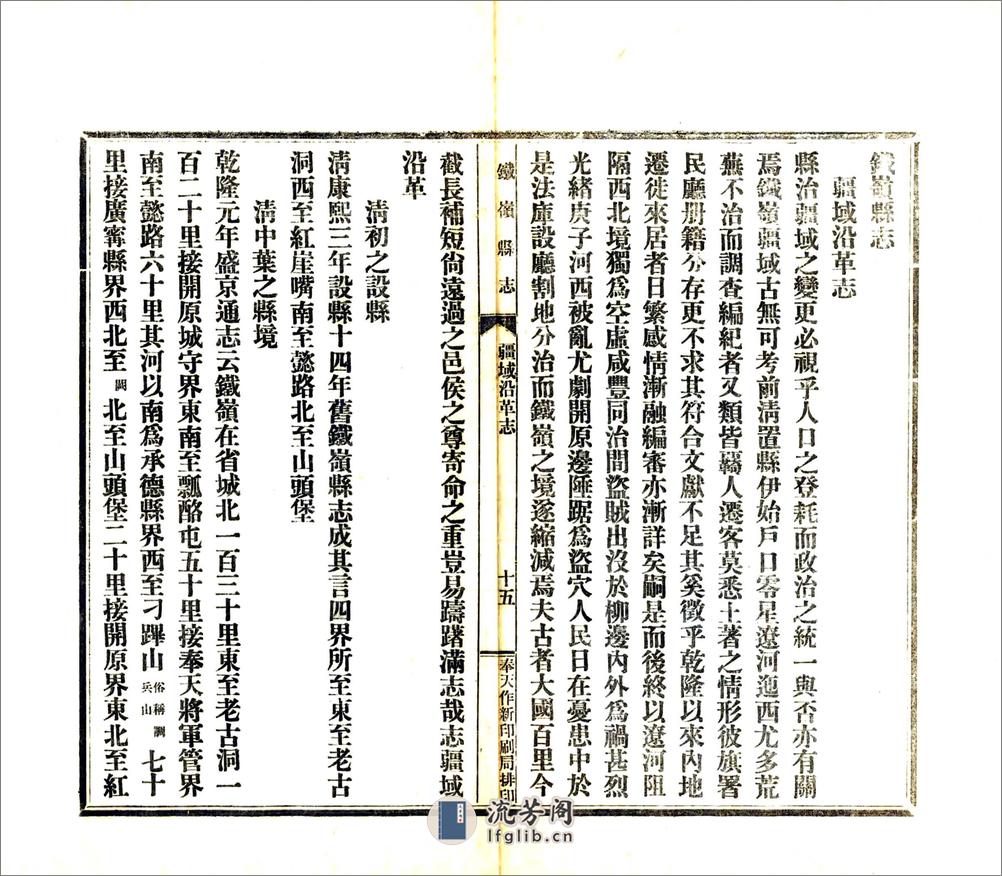 鐵嶺縣志
疆域沿革志
縣治疆域之變更必視乎人口之登耗而政治之統一與否亦有關
焉鐵嶺疆域古無可考前淸置縣伊始戶口零星遼河迤西尤多荒
蕪不治而調查編紀者又類皆羈人遷客莫悉土著之情形彼旗署
民廳册籍分存更不求其符合文獻不足其奚徵乎乾隆以來內地
遷徙來居者日繁感情漸融編審亦漸詳矣嗣是而後終以遼河阻
隔西北境獨爲空虛咸豐同治間盜賊出沒於柳邊內外爲禍甚烈
光緖庚子河西被亂尤劇開原邊陲踞爲盜穴人民日在憂患中於
是法庫設廳割地分治而鐵嶺之境遂縮減焉夫古者大國百里今
鐵嶺縣志 疆域沿革志 十五 奉天作新印刷局排印
截長補短尙遠過之邑侯之尊寄命之重豈易躊躇滿志哉志疆域
沿革
淸初之設縣
淸康熙三年設縣十四年舊鐵嶺縣志成其言四界所至東至老古
洞西至紅崖嘴南至懿路北至山頭堡
淸中葉之縣境
乾隆元年盛京通志云鐵嶺在省城北一百三十里東至老古洞一
百二十里接開原城守界東南至瓢酪屯五十里接奉天將軍管界
南至懿路六十里其河以南爲承德縣界西至刁蹕山俗稱調兵山七十
里接廣甯縣界西北至闕北至山頭堡二十里接開原界東北至紅
流芳阁
lfglib.cn